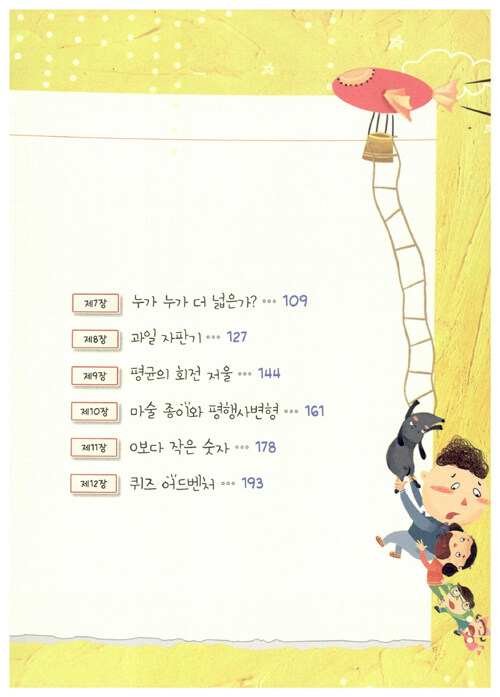 제7장 누가 누가 더 넓은가? ··· 109
제8장 과일 자판기 ··· 127
제9장 평균의 회전 저울 ··· 144
제10장 마술 종이와 평행사변형 ··· 161
제11장 0보다 작은 숫자 ··· 178
제12장 퀴즈 어드벤처 ··· 193